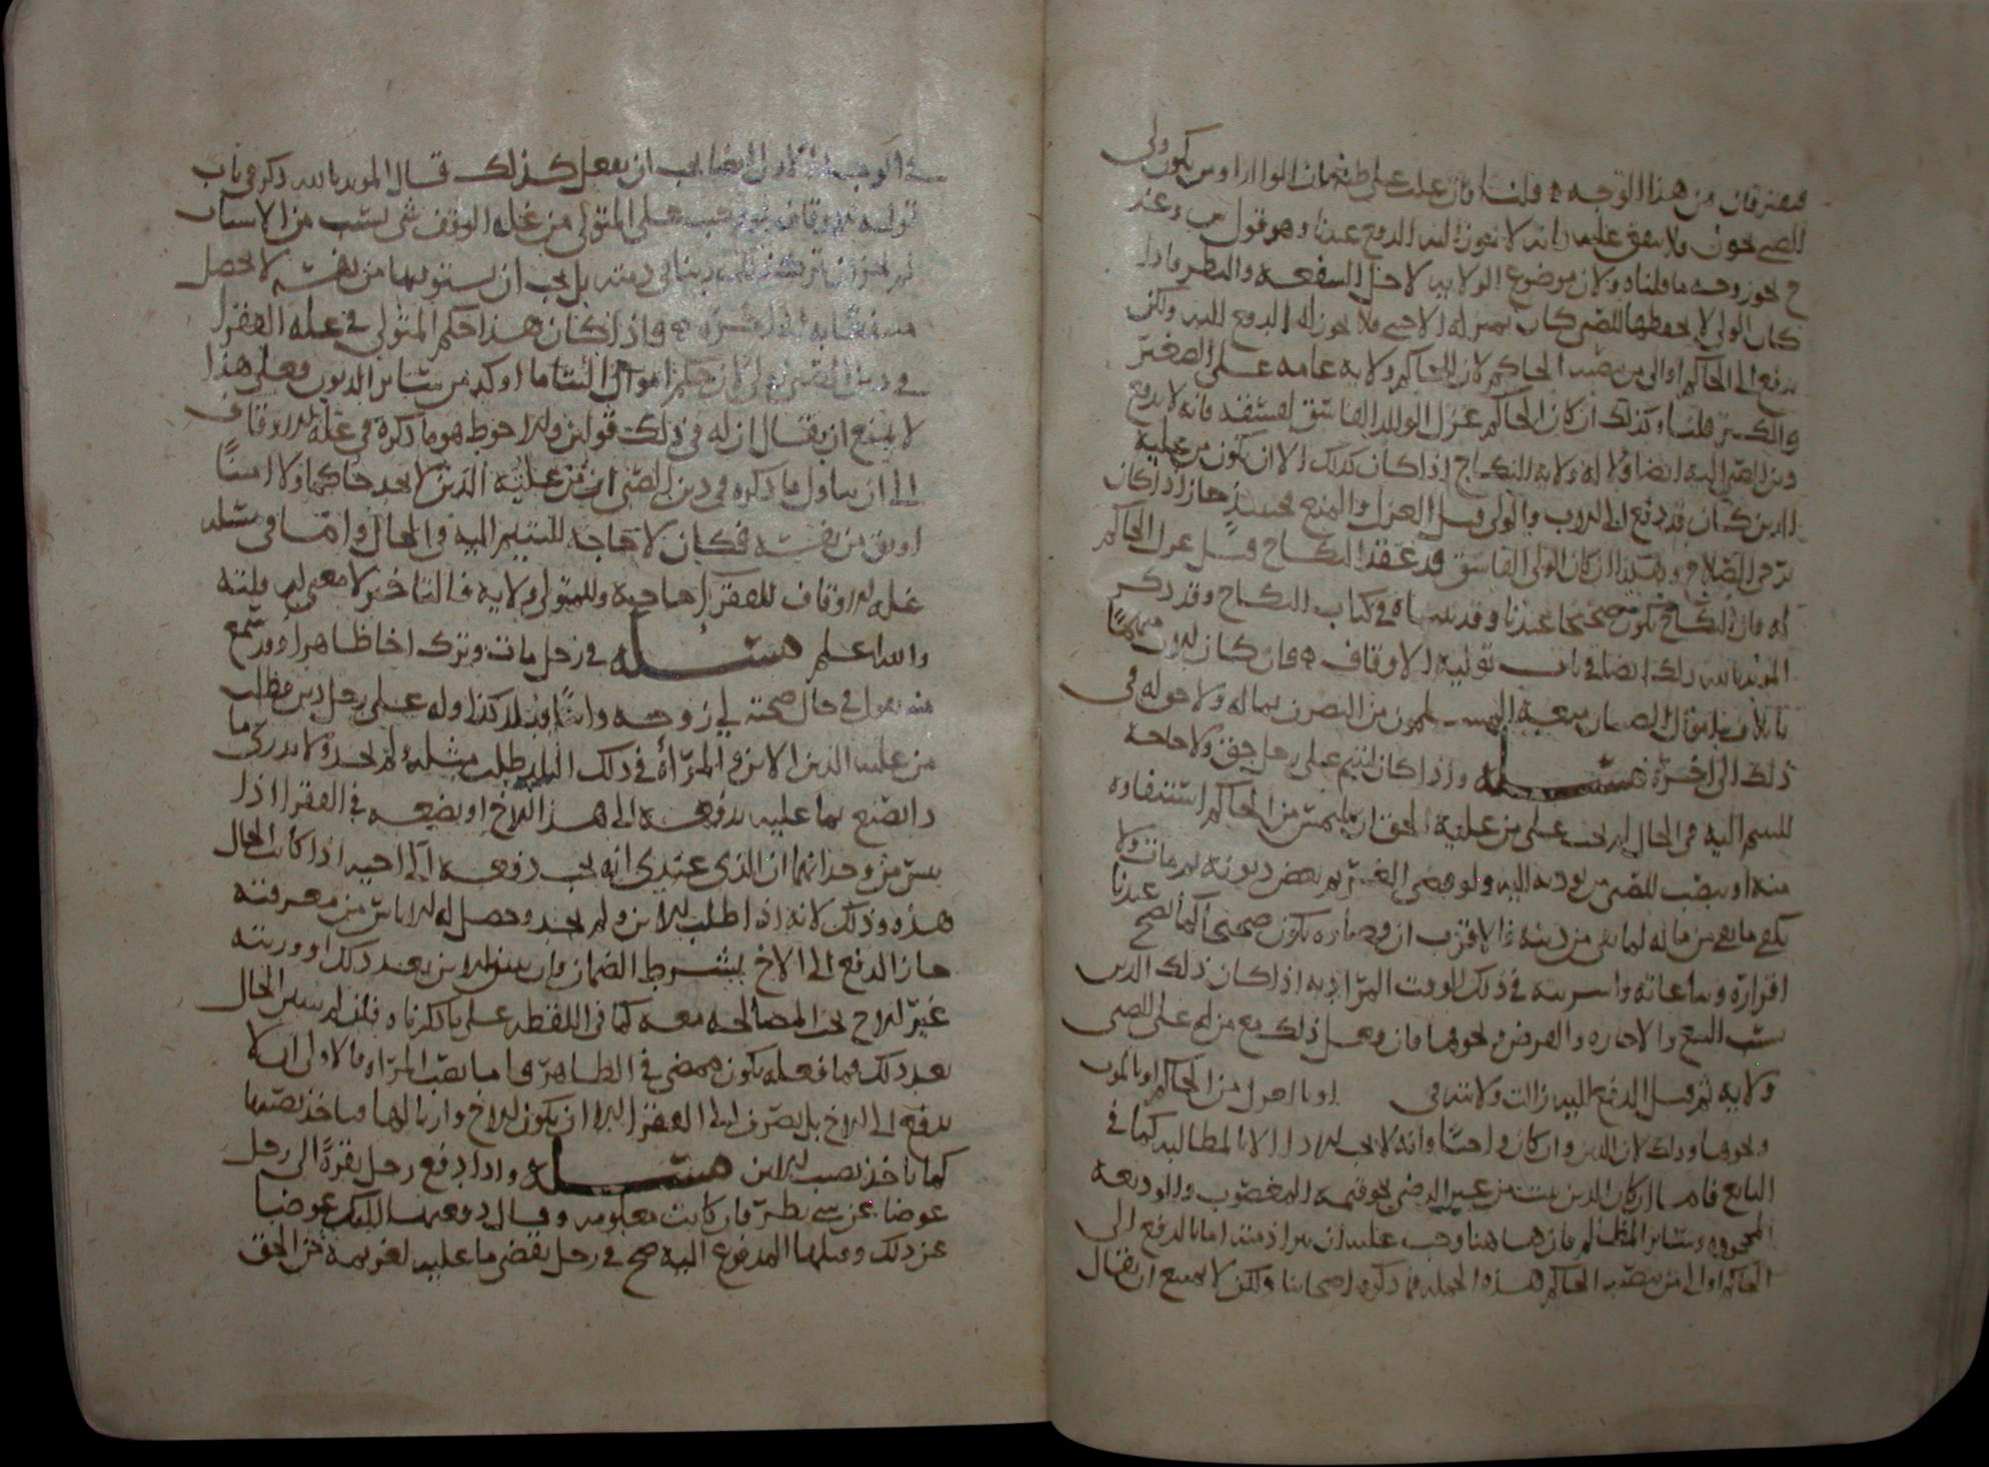 فيفترقان من هذا الوجه قلنا فان غلب على ظنه ان
للصبي يخون ولا ينفق عليه فانه لا يجوز له الدفع عندنا وهو قول
لا يجوز وجهه ما قلناه ولان موضوع الولاية لاجل المنفعة والنظر فاذا
كان الولي لا يحفظها للصبي كان بمنزلة الاجنبي فلا يجوز له الدفع اليه ولكن
يدفع الى الحاكم او الى من نصبه الحاكم لان للحاكم ولاية عامة على الصغير
والكبير قلنا وكذلك ان كان الحاكم عزل الوالد الفاسق لفسقه فانه لا يدفع
دين الصبي اليه ايضا ولا له ولاية النكاح اذا كان كذلك الا ان يكون من عليه
الدين كان قد دفع الى الاب والولي قبل العزل والمنع فحينئذ جاز اذا كان
يرجى الصلاح وهكذا ان كان الولي الفاسق قد عقد النكاح قبل عزل الحاكم
له فان النكاح يكون صحيحا عندنا وقد بيناه في كتاب النكاح وقد ذكر
المؤيد بالله ذلك ايضا في باب تولية الاوقاف فان كان
باتلاف اموال الصبيان يمنعه المسلمون من التصرف بماله ولا حق له في
ذلك الى اخره مسئلة واذا كان ليتيم على رجل حق ولا حاجة
لليتيم اليه في الحال لم يجب على من عليه الحق ان يلتمس من الحاكم استنفاوه
منه او ينصب للصبي من يوديه اليه ولو قضى الغريم بعض ديونه ثم مات ولا
يكفي ما بقي من ماله لما بقي من دينه فالاقرب ان قضاءه يكون صحيحا كما يصح عندنا
اقراره وبياعاته واشريته في ذلك الوقت المراد به اذا كان ذلك الدين
سبب البيع والاجارة والقرض ونحوها فان فعل ذلك مع من له على الصبي
ولاية ثم قبل الدفع اليه زالت ولايته في او بالعزل من الحاكم او بالموت
ونحوها وذلك لان الدين وان كان واجبا فانه لا يجب الاداء الا بالمطالبة كما في
البائع فاما ان كان الدين يثبت من غير التراضي نحو قيمة المغصوب والوديعة
المجحودة وسائر المظالم فان هاهنا وجب عليه ان يبرا ذمته اما بالدفع الى
الحاكم او الى من ينصبه الحاكم هذه الجملة مما ذكره اصحابنا ولكن لا يمتنع ان يقال
في الوجه الاول ايضا يجب ان يفعل كذلك قال المؤيد بالله ذكر في باب
تولية الاوقاف لو وجب على المتولي من غلة الوقف شي بسبب من الاسباب
لم يجز ان يترك ذلك دينا في ذمته بل يجب ان يستوفيها من نفسه لا يحصل
منتفعا به الى اخره فاذا كان هذا حكم المتولي في غلة الفقرا
في دين الصبي اولى لان حكم اموال اليتامى اوكد من سائر الديون فعلى هذا
لا يمتنع ان يقال ان له في ذلك قولين والاحوط هو ما ذكره في غلة الاوقاف
الى ان يتاول ما ذكره في دين الصبي ان من عليه الدين لا يجد حاكما ولا امينا
اوثق من نفسه فكان لا حاجة للتسليم اليه في الحال واما في مسئلة
غلة الاوقاف للفقرا حاجة وللمتولي ولاية فالتاخير لا معنى له
والله اعلم مسئلة في رجل مات وترك اخا ظاهرا وقد سمع
منه يقول في حال صحته لي زوجه وابنا في بلد كذا وله على رجل دين فطلب
من عليه الدين الابن والمراة في ذلك البلد طلب مثله فلم يجد ولا يدري ما
ذا يصنع بما عليه يدفعه الى هذا الاخ او يضعه في الفقرا اذا
يئس من وجدانهما ان الذي عندي انه يجب دفعه الى اخيه اذا كانت الحال
هذه وذلك لانه اذا طلب الابن ولم يجد وحصل له الاياس من معرفته
جاز الدفع الى الاخ بشرط الضمان فان بين الابن بعد ذلك او ورثته
غير الاخ يجب المصالحة معه كما في اللقطة على ما ذكرنا وقلنا لم يتبين الحال
بعد ذلك فما فعله يكون ممضي في الظاهر واما نصيب المراة فالاولى ان لا
يدفع الى الاخ بل يصرف الى الفقرا الا ان يكون الاخ وارثا لها فياخذ نصيبها
كما ياخذ نصيب الابن مسئلة واذا دفع رجل بقرة الى رجل
عوضا عن شي نظر فان كانت معلومه وقال دفعتها اليك عوضا
عن ذلك وقبلها المدفوع اليه صح في رجل يقضي ما عليه لغريمه من الحق